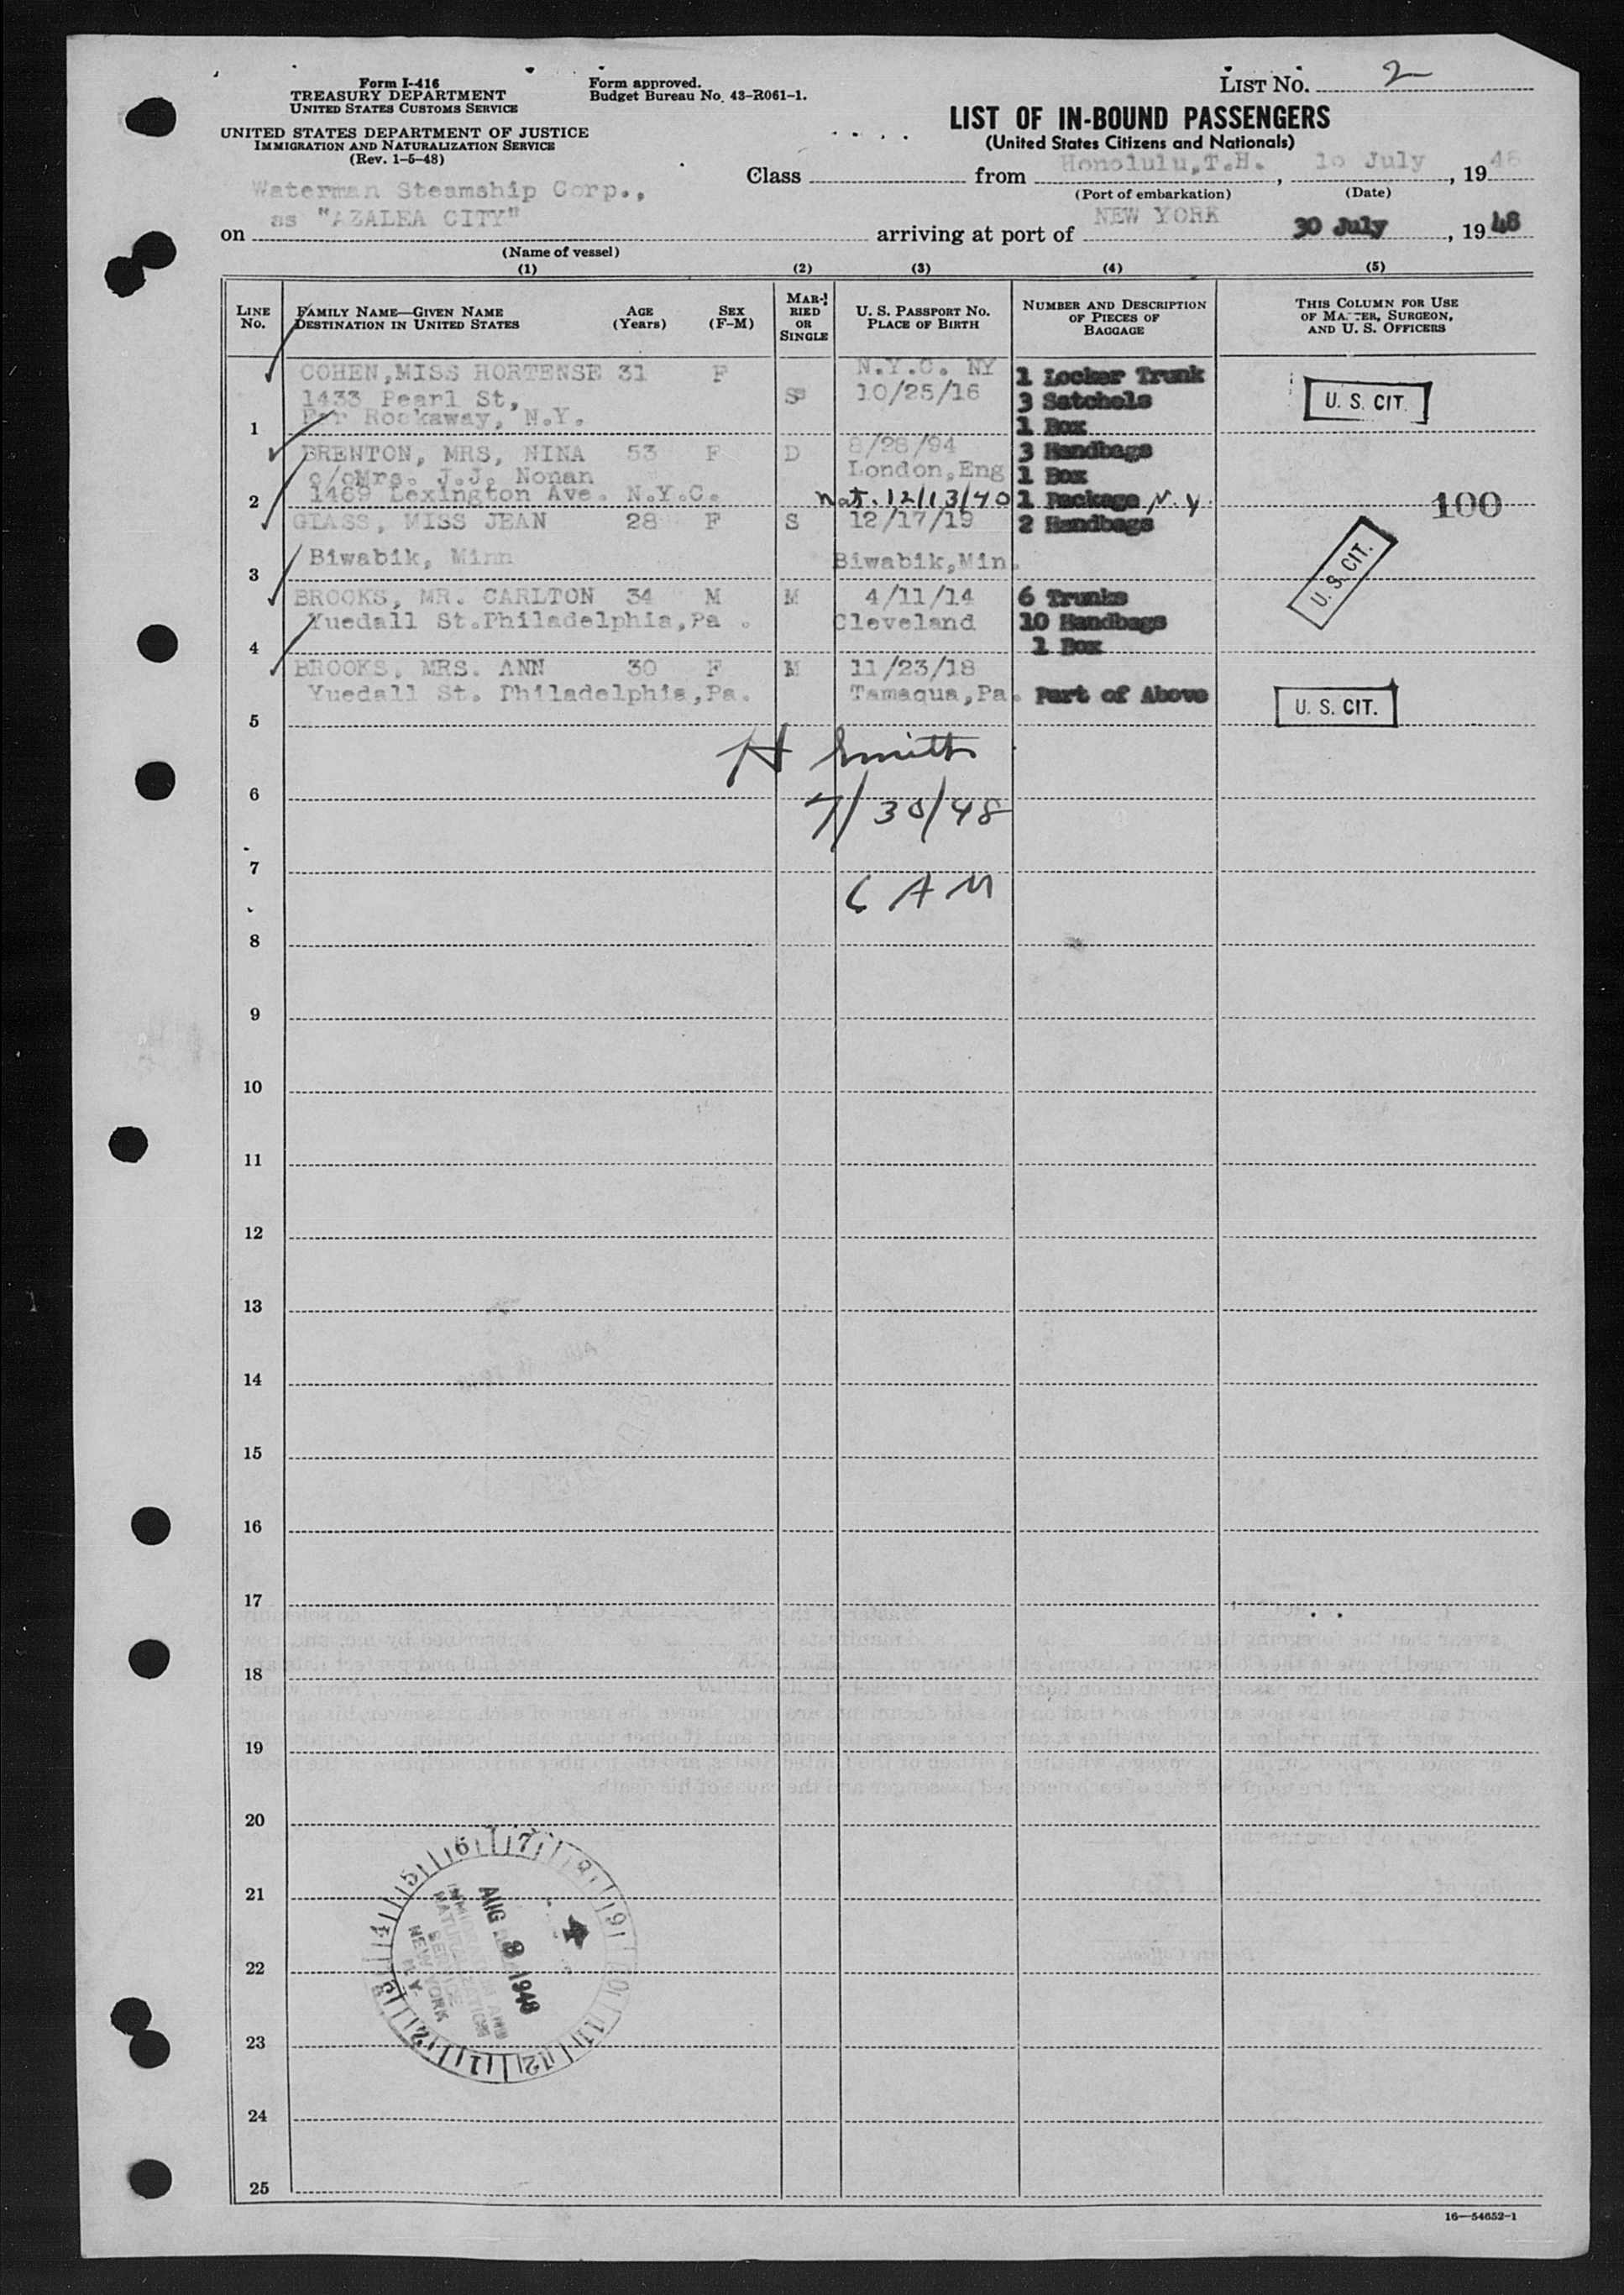 Form I-416
TREASURY DEPARTMENT
UNITED STATES CUSTOMS SERVICE
Form approved.
Budget Bureau No. 43-R061-1.
LIST NO. 2
UNITED STATES DEPARTMENT OF JUSTICE
IMMIGRATION AND NATURALIZATION SERVICE
(Rev. 1-5-48)
LIST OF IN-BOUND PASSENGERS
(United States Citizens and Nationals)
Class from Honolulu,T.H. , 10 July , 19 48
(Port of embarkation) (Date)
Waterman Steamship Corp.,
on ss "AZALEA CITY" arriving at port of NEW YORK 30 July , 19 48
(Name of vessel)
(1) (2) (3) (4) (5)
LINE No. FAMILY NAME—GIVEN NAME DESTINATION IN UNITED STATES AGE (Years) SEX (F-M) MARRIED OR SINGLE U. S. PASSPORT NO. PLACE OF BIRTH NUMBER AND DESCRIPTION OF PIECES OF BAGGAGE THIS COLUMN FOR USE OF MASTER, SURGEON, AND U. S. OFFICERS
COHEN,MISS HORTENSE 31 F N.Y.C. NY 1 Locker Trunk
1433 Pearl St, S 10/25/16 3 Satchels U. S. CIT.
1 Far Rockaway, N.Y. 1 Box
BRENTON, MRS, NINA 53 F D 8/28/94 3 Handbags
c/oMrs. J.J. Nonan London,Eng 1 Box
2 1469 Lexington Ave. N.Y.C. Nat. 12/13/40 1 Package N.Y. 100
GLASS, MISS JEAN 28 F S 12/17/19 2 Handbags
3 Biwabik, Minn Biwabik,Min. U. S. CIT.
BROOKS, MR. CARLTON 34 M M 4/11/14 6 Trunks
Yuedall St.Philadelphia,Pa . Cleveland 10 Handbags
4 1 Box
BROOKS, MRS. ANN 30 F M 11/23/18
Yuedall St. Philadelphia,Pa. Tamaqua,Pa. Part of Above U. S. CIT.
5
H Smith
6
7/30/48
7
C A M
8
9
10
11
12
13
14
15
16
17
18
19
20
21
22
23
24
25
1 2 3 4 5 6 7 8 9 10 11 12
AUG 8 1948
IMMIGRATION AND
NATURALIZATION
SERVICE
NEW YORK
N.Y.
16—54652-1